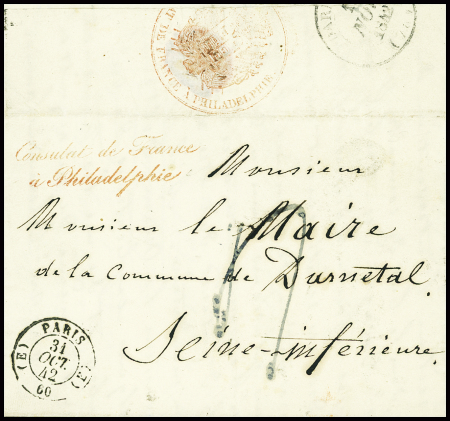 DE FRANCE A PHILADELPHIE
NOV
Consulat de France
à Philadelphie
Monsieur
Monsieur le Maire
de la Commune de Darnetal.
Seine-inférieure.
PARIS
31
OCT.
42
(E) (E)
60